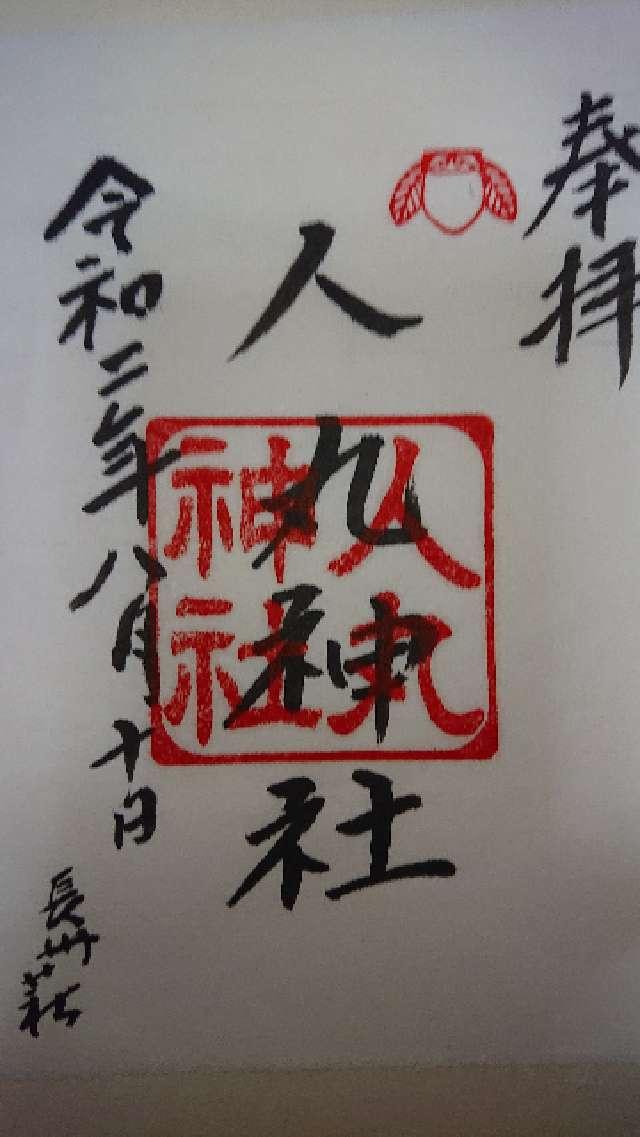 奉拝
人丸神社
人丸
神社
令和二年八月十日
長州萩